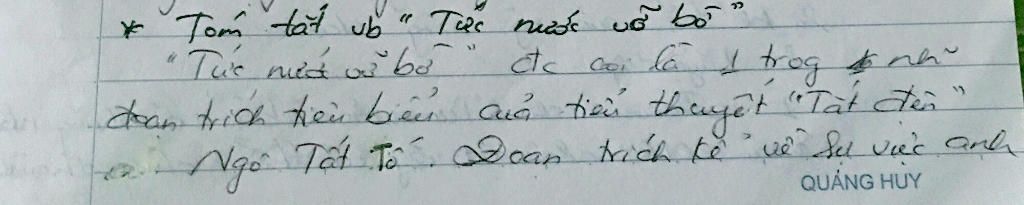 * Tóm tắt vb "Tức nước vỡ bờ"
"Tức nước vỡ bờ" đc coi là 1 trog nh~
đoạn trích tiêu biểu của tiểu thuyết "Tắt đèn"
Ngô Tất Tố. Đoạn trích kể về sự việc anh
QUÁNG HUY